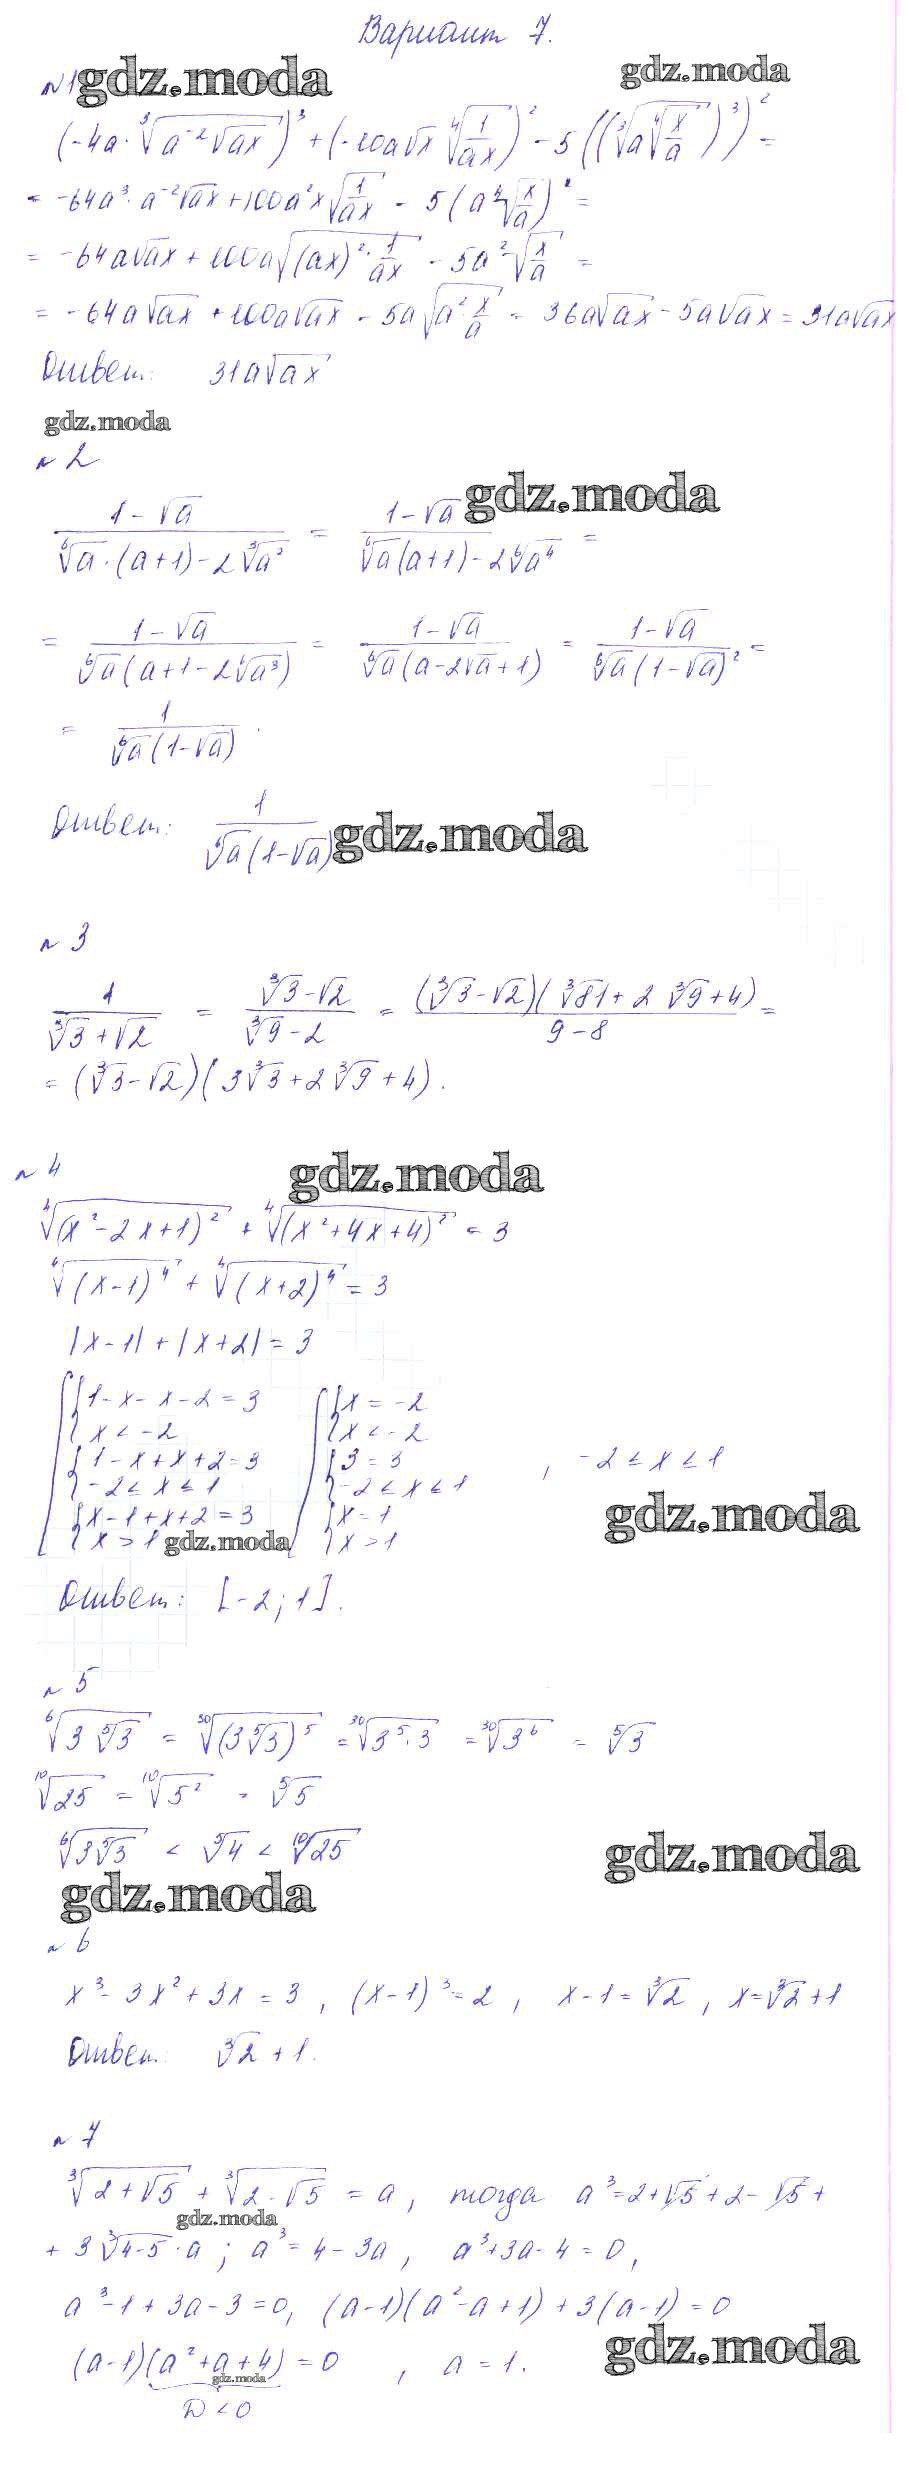 Вариант 7.
gdz.moda gdz.moda
№1
(-4a·∛(a⁻²√(ax)))³ + (-10a√x ∜(1/(ax)))² - 5((∛(a∜(x/a)))³)² =
= -64a³·a⁻²√(ax) + 100a²x√(1/(ax)) - 5(a∜(x/a))² =
= -64a√(ax) + 100a√((ax)²·1/(ax)) - 5a²√(x/a) =
= -64a√(ax) + 100a√(ax) - 5a√(a²·x/a) = 36a√(ax) - 5a√(ax) = 31a√(ax)
Ответ: 31a√(ax)
gdz.moda
№2
gdz.moda
(1-√a)/(⁶√a·(a+1)-2∛(a²)) = (1-√a)/(⁶√a(a+1)-2⁶√(a⁴)) =
= (1-√a)/(⁶√a(a+1-2⁶√(a³))) = (1-√a)/(⁶√a(a-2√a+1)) = (1-√a)/(⁶√a(1-√a)²) =
= 1/(⁶√a(1-√a)).
Ответ: 1/(⁶√a(1-√a))
gdz.moda
№3
1/(∛3+√2) = (∛3-√2)/(∛9-2) = (∛3-√2)(∛81+2∛9+4)/(9-8) =
= (∛3-√2)(3∛3+2∛9+4).
№4
gdz.moda
∜((x²-2x+1)²) + ∜((x²+4x+4)²) = 3
∜((x-1)⁴) + ∜((x+2)⁴) = 3
|x-1|+|x+2| = 3
1-x-x-2=3 x=-2
x<-2 x<-2
1-x+x+2=3 3=3 , -2≤x≤1
-2≤x≤1 -2≤x≤1
x-1+x+2=3 x=1
x>1 x>1
gdz.moda gdz.moda
Ответ: [-2;1].
№5
⁶√(3⁵√3) = ³⁰√((3⁵√3)⁵) = ³⁰√(3⁵·3) = ³⁰√(3⁶) = ⁵√3
¹⁰√25 = ¹⁰√(5²) = ⁵√5
⁶√(3⁵√3) < ⁵√4 < ¹⁰√25
gdz.moda
gdz.moda
№6
x³-3x²+3x=3, (x-1)³=2, x-1=∛2, x=∛2+1
Ответ: ∛2+1.
№7
∛(2+√5) + ∛(2-√5) = a, тогда a³=2+√5+2-√5+
gdz.moda
+3∛(4-5)·a; a³=4-3a, a³+3a-4=0,
a³-1+3a-3=0, (a-1)(a²-a+1)+3(a-1)=0
gdz.moda
(a-1)(a²+a+4)=0, a=1.
gdz.moda
D<0